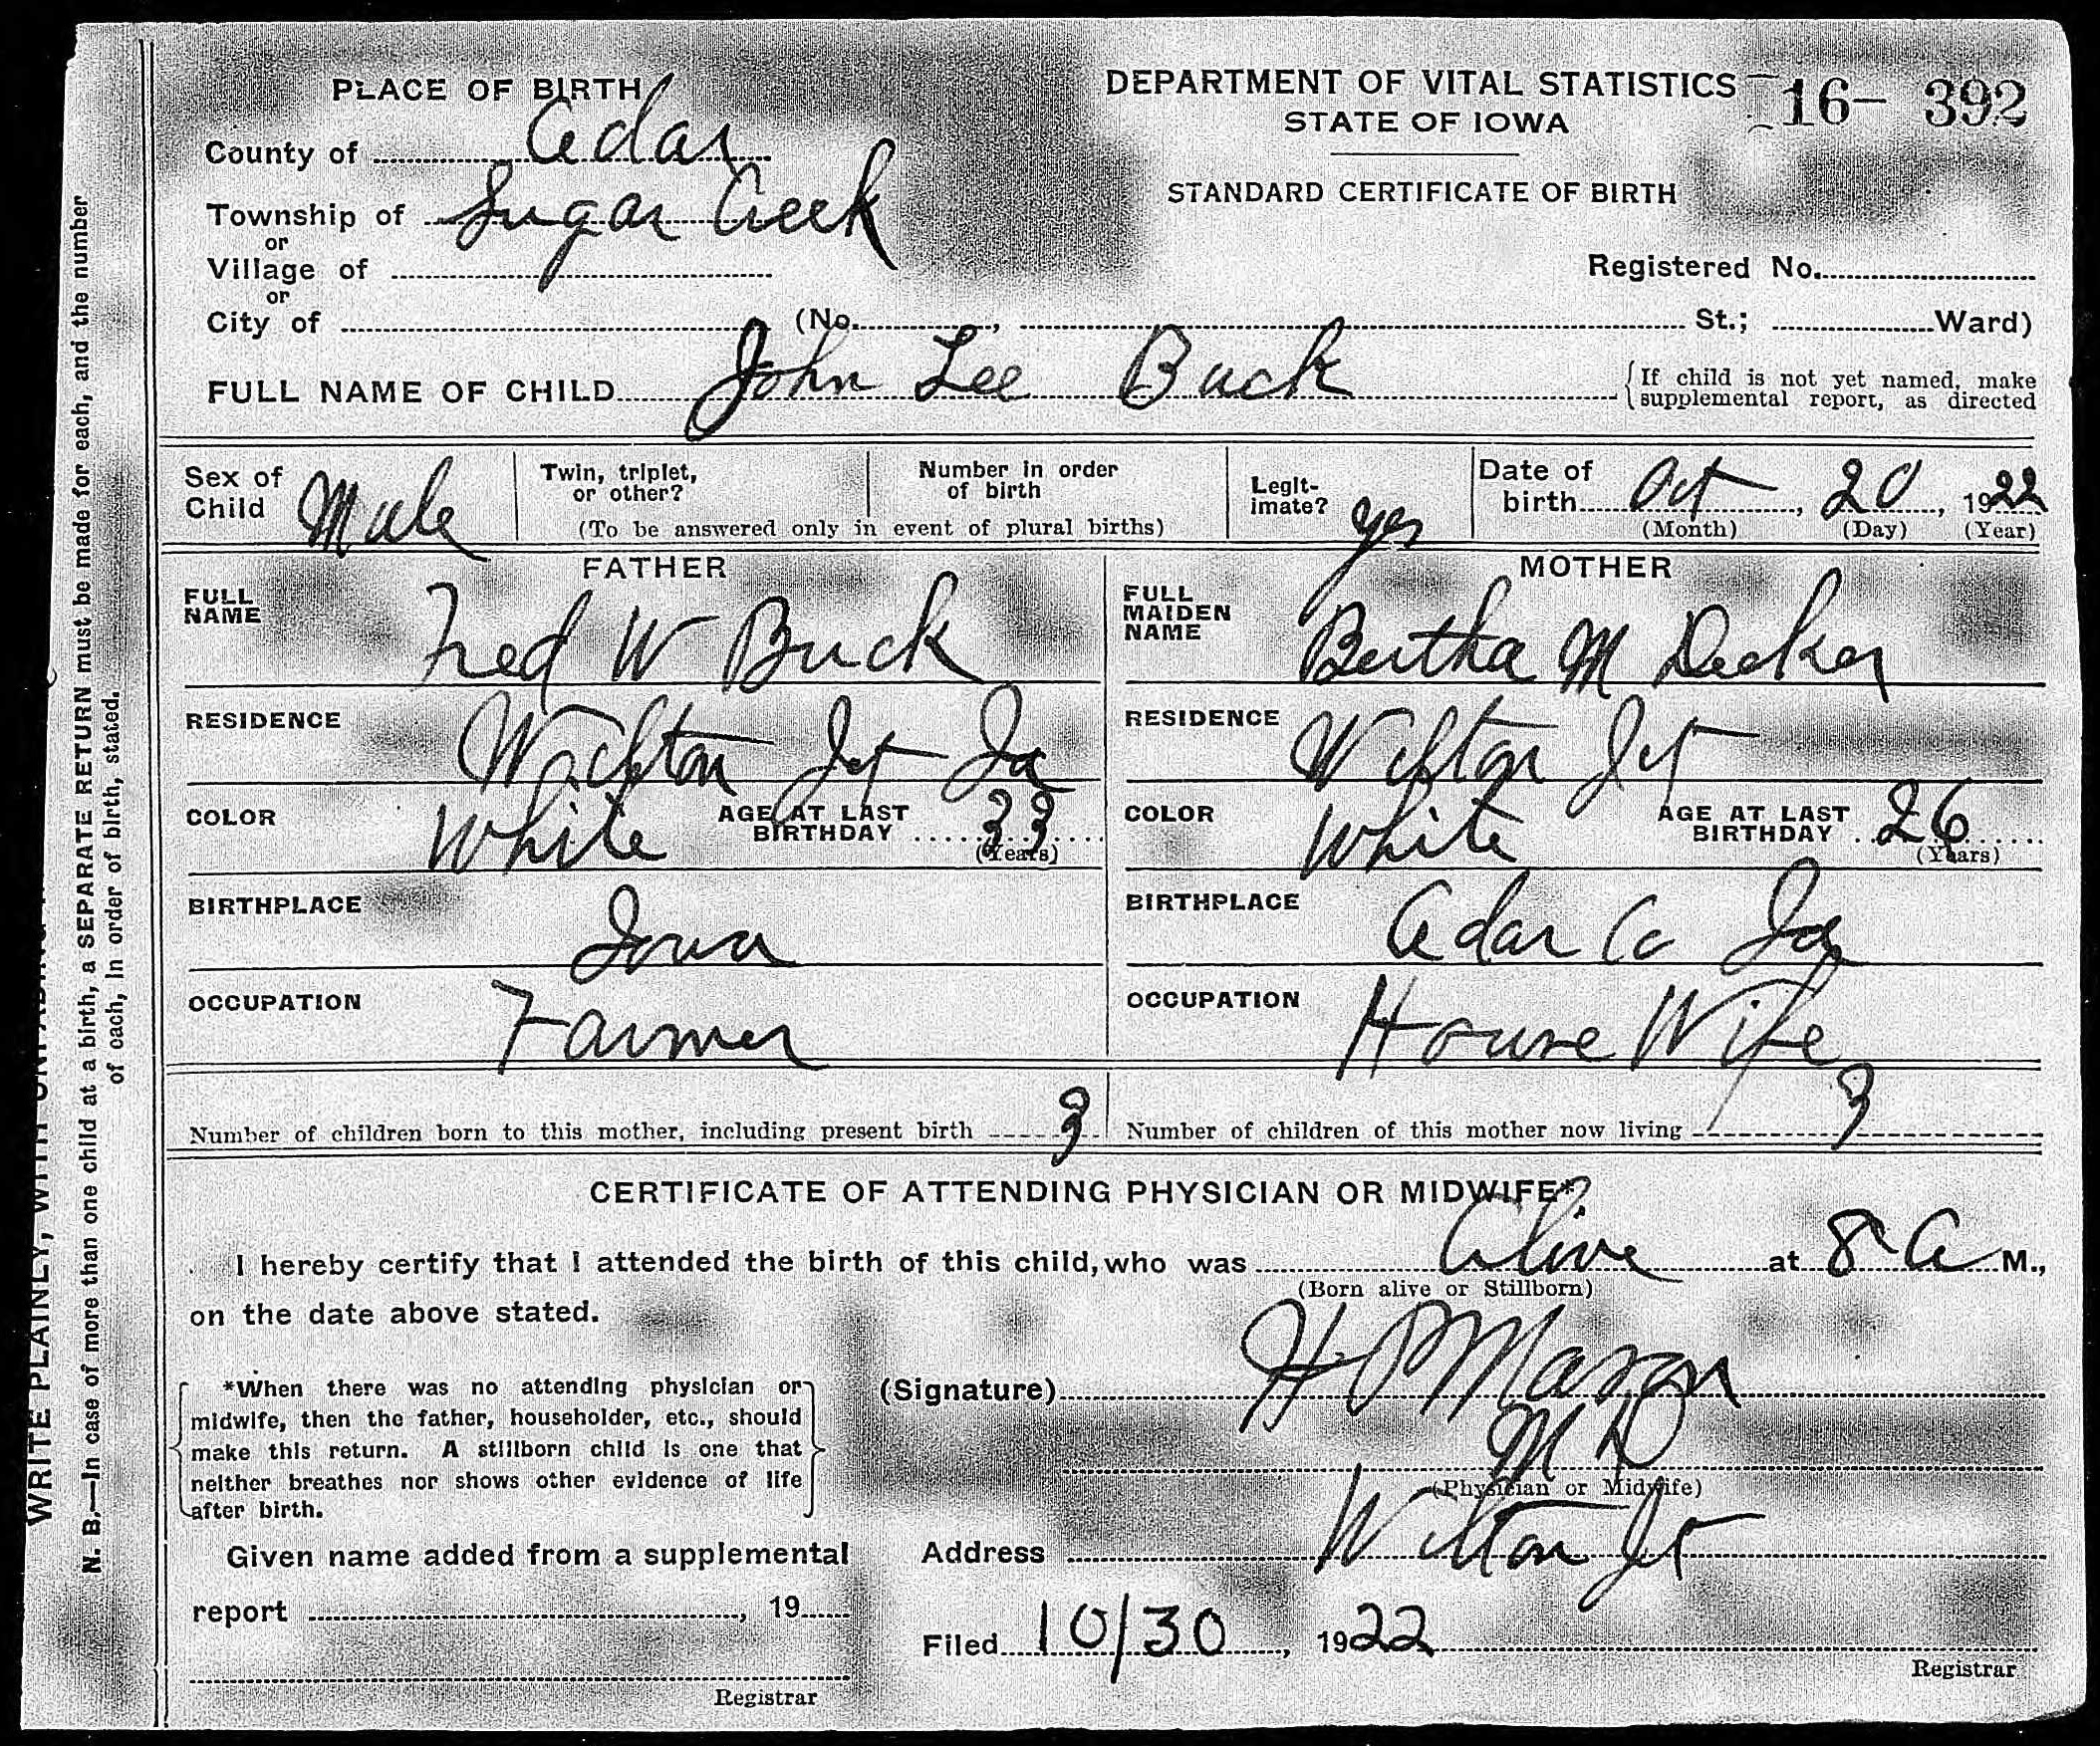 PLACE OF BIRTH
DEPARTMENT OF VITAL STATISTICS
STATE OF IOWA
16- 392
STANDARD CERTIFICATE OF BIRTH
County of Cedar
Township of Sugar Creek
or
Village of
or
City of (No. , St.; Ward)
Registered No.
FULL NAME OF CHILD John Lee Buck {If child is not yet named, make
supplemental report, as directed
Sex of Child Male
Twin, triplet, or other?
Number in order of birth
(To be answered only in event of plural births)
Legit-imate? yes
Date of birth Oct, 20, 1922
(Month) (Day) (Year)
FATHER
FULL NAME Fred W Buck
RESIDENCE Wilton Jct Ia
COLOR White AGE AT LAST BIRTHDAY 33 (Years)
BIRTHPLACE Iowa
OCCUPATION Farmer
MOTHER
FULL MAIDEN NAME Bertha M Decker
RESIDENCE Wilton Jct
COLOR White AGE AT LAST BIRTHDAY 26 (Years)
BIRTHPLACE Cedar Co Ia
OCCUPATION House Wife
Number of children born to this mother, including present birth 3
Number of children of this mother now living 3
CERTIFICATE OF ATTENDING PHYSICIAN OR MIDWIFE*
I hereby certify that I attended the birth of this child, who was Alive at 8 A M.,
(Born alive or Stillborn)
on the date above stated.
*When there was no attending physician or
midwife, then the father, householder, etc., should
make this return. A stillborn child is one that
neither breathes nor shows other evidence of life
after birth.
(Signature) H O Mason
M D
(Physician or Midwife)
Given name added from a supplemental
report , 19
Registrar
Address Wilton Jct
Filed 10/30, 1922
Registrar
WRITE PLAINLY, WITH
N. B.—In case of more than one child at a birth, a SEPARATE RETURN must be made for each, and the number
of each, in order of birth, stated.